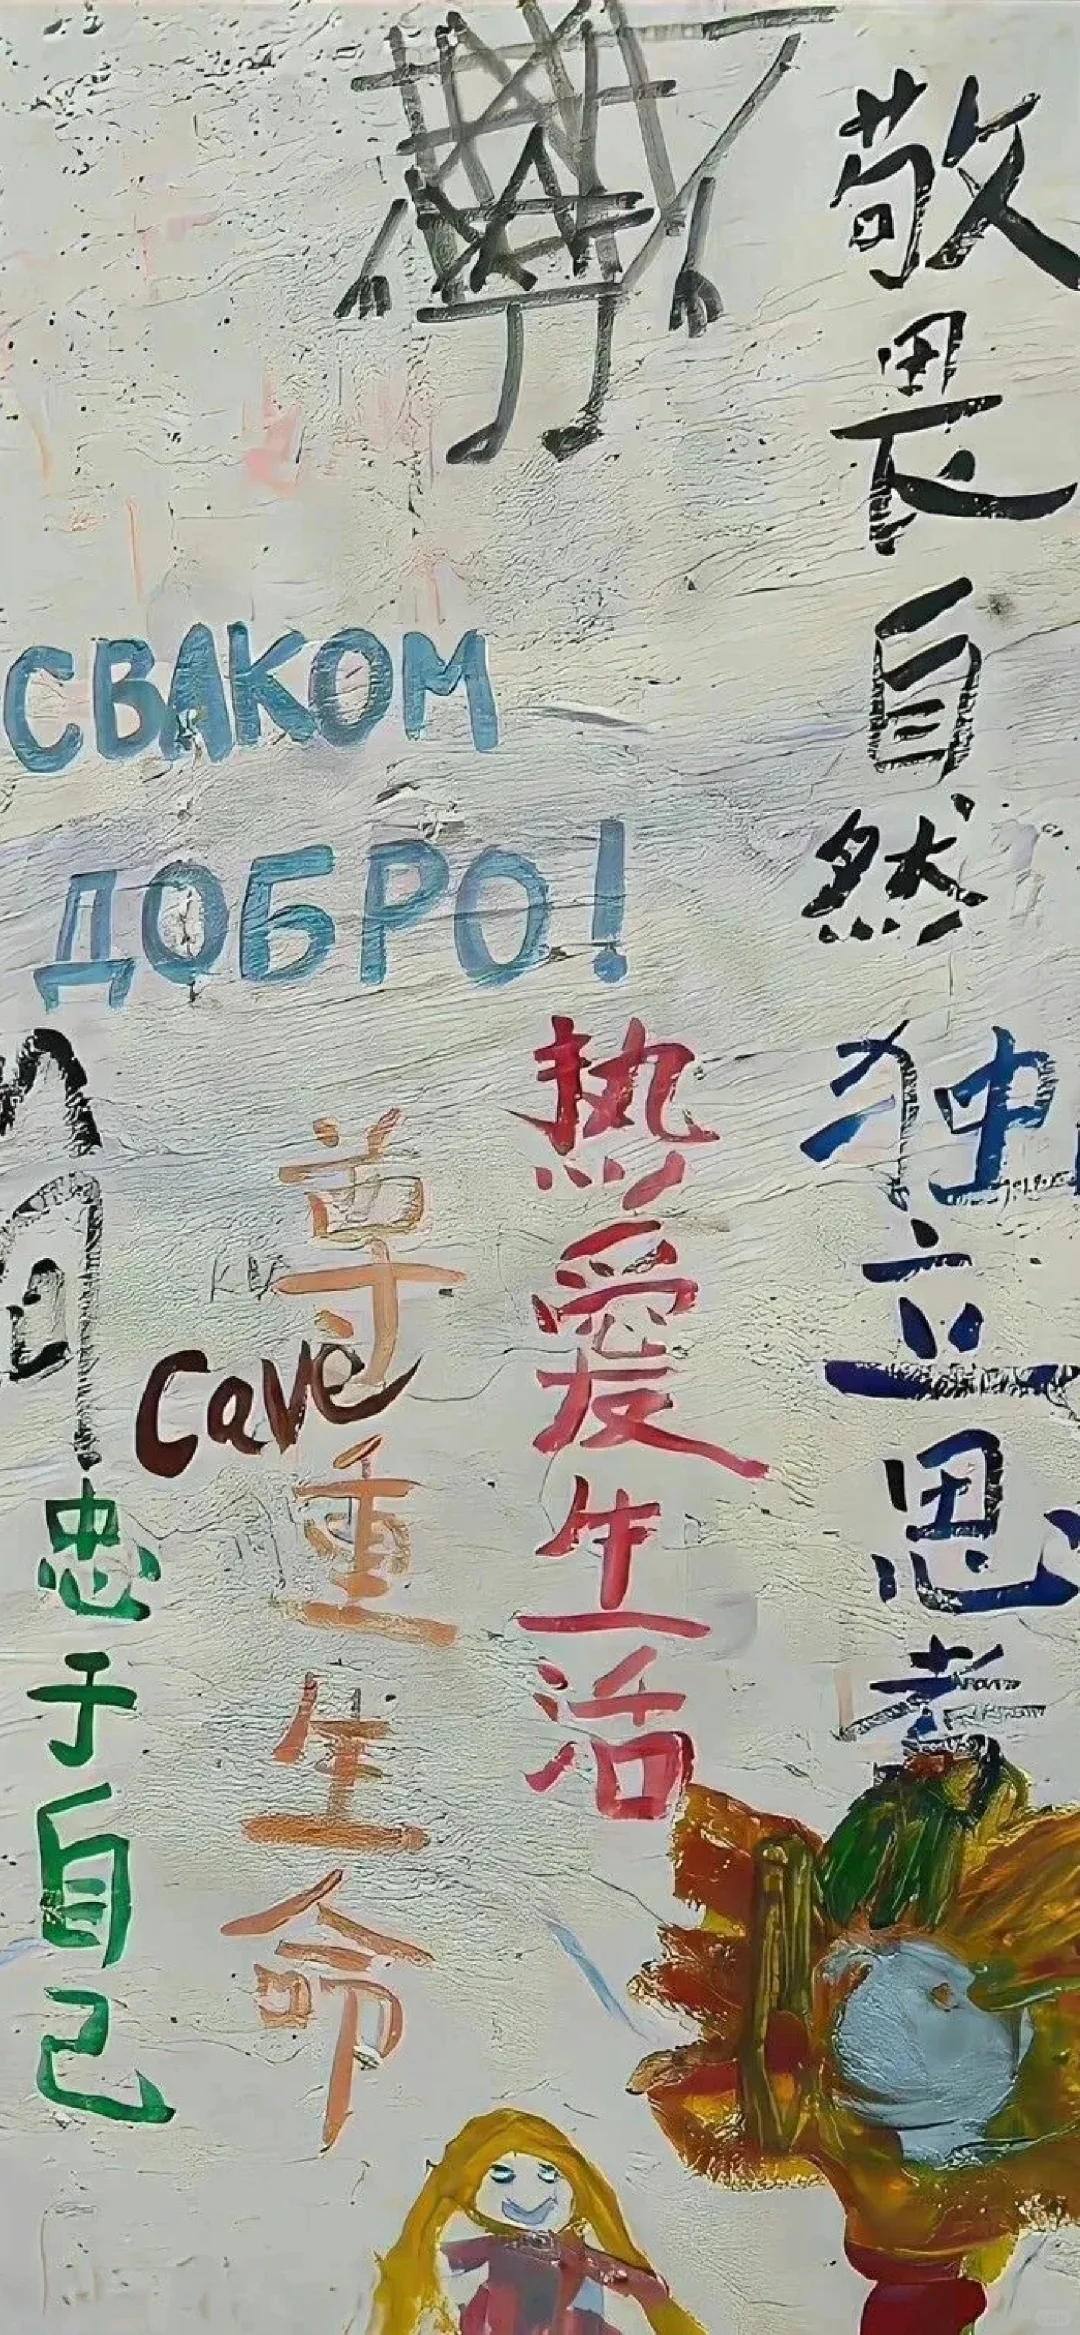 敬畏自然
СВАКОМ
ДОБРО!
独立思考
热爱生活
尊重生命
Cave
忠于自己